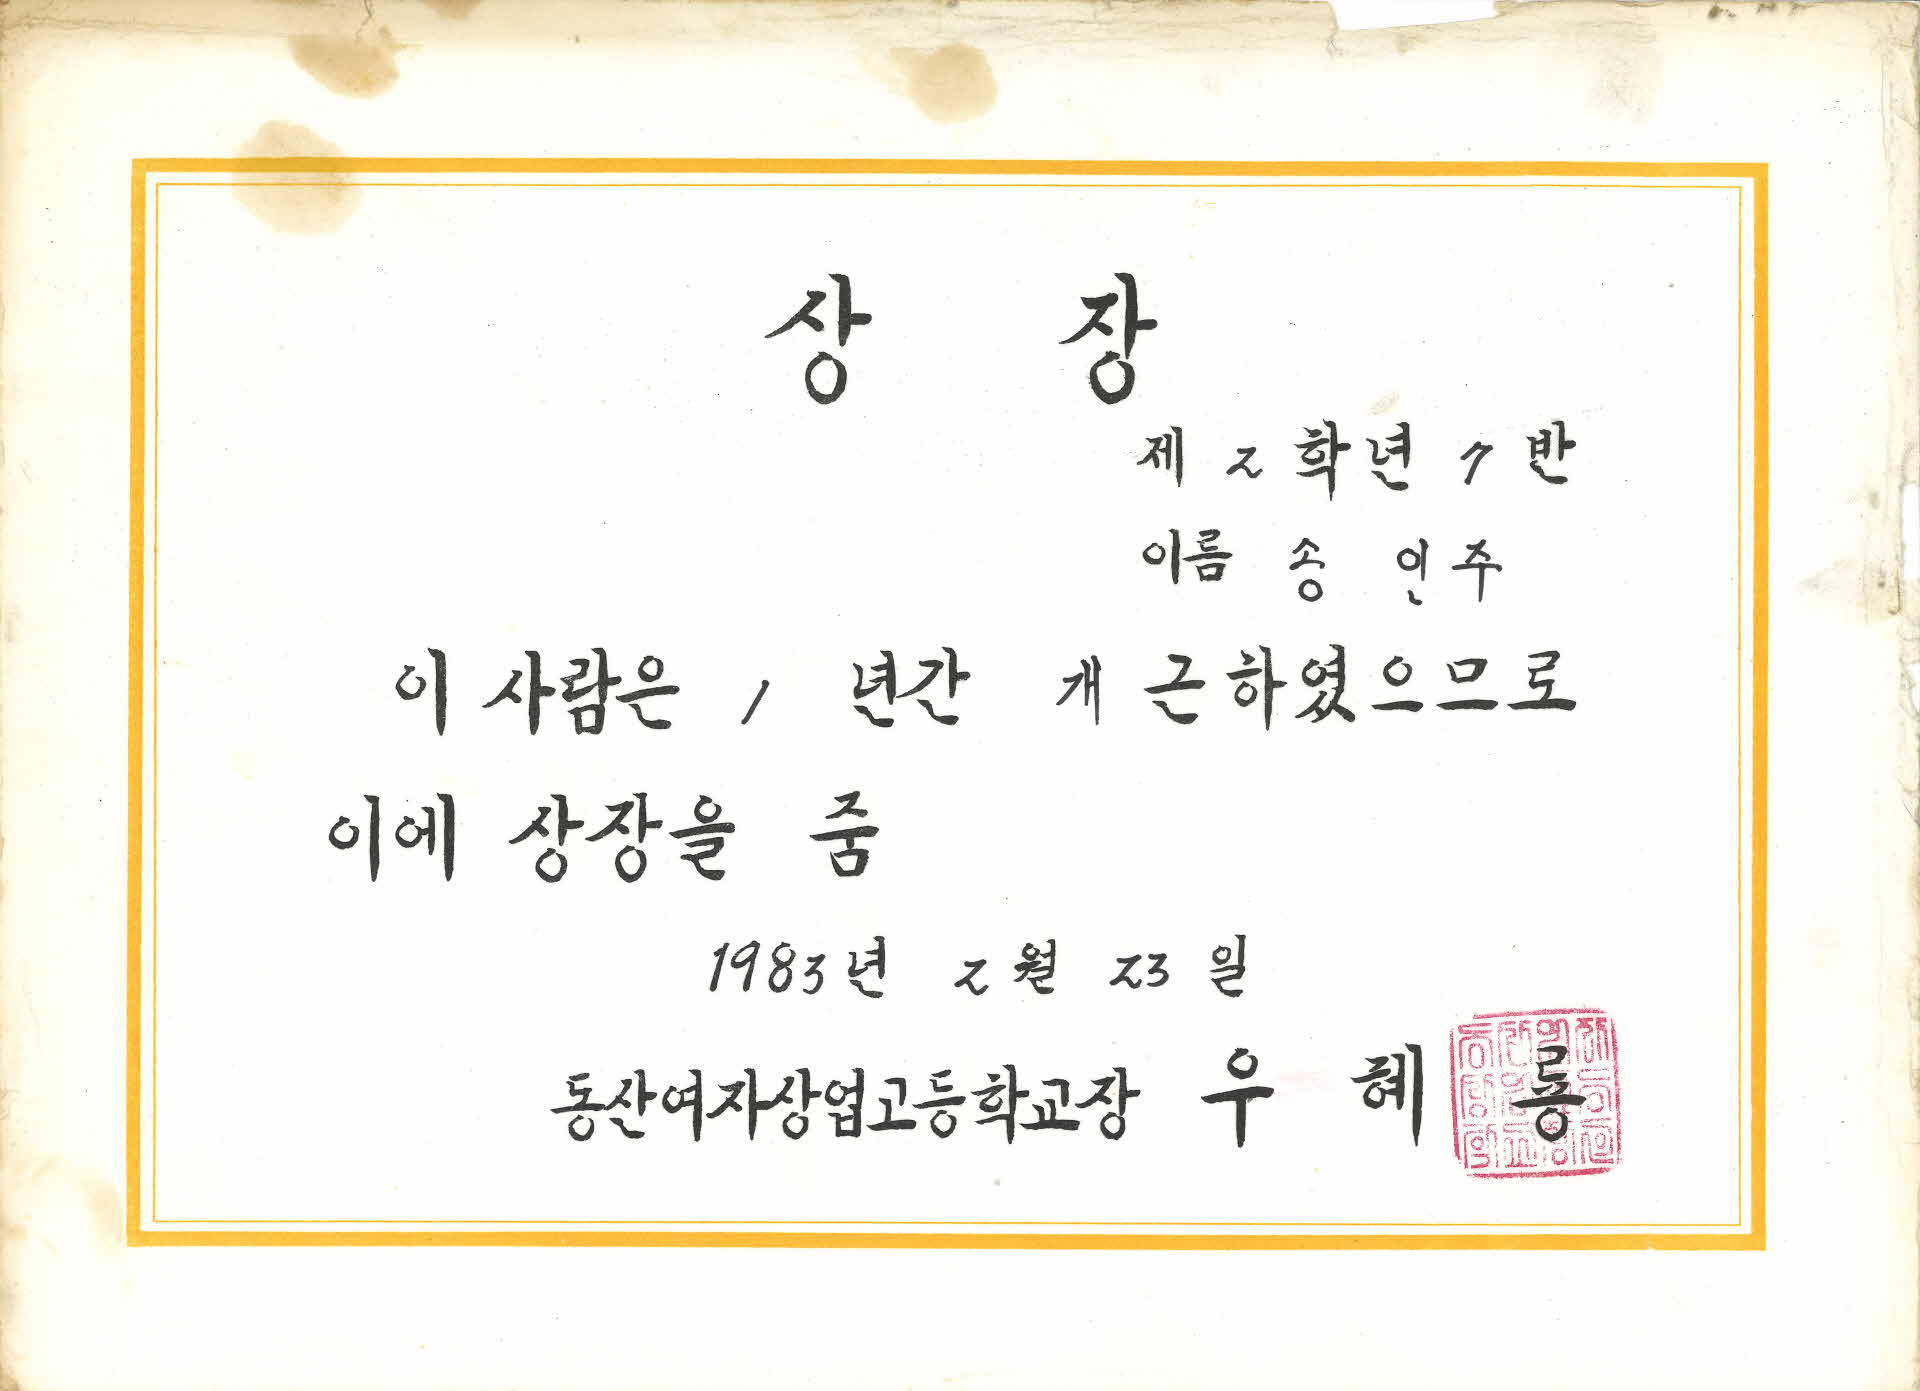 상 장
제 2 학년 7 반
이름 송 인주
이 사람은 1 년간 개근하였으므로
이에 상장을 줌
1983년 2월 23일
동산여자상업고등학교장 우 혜 룡